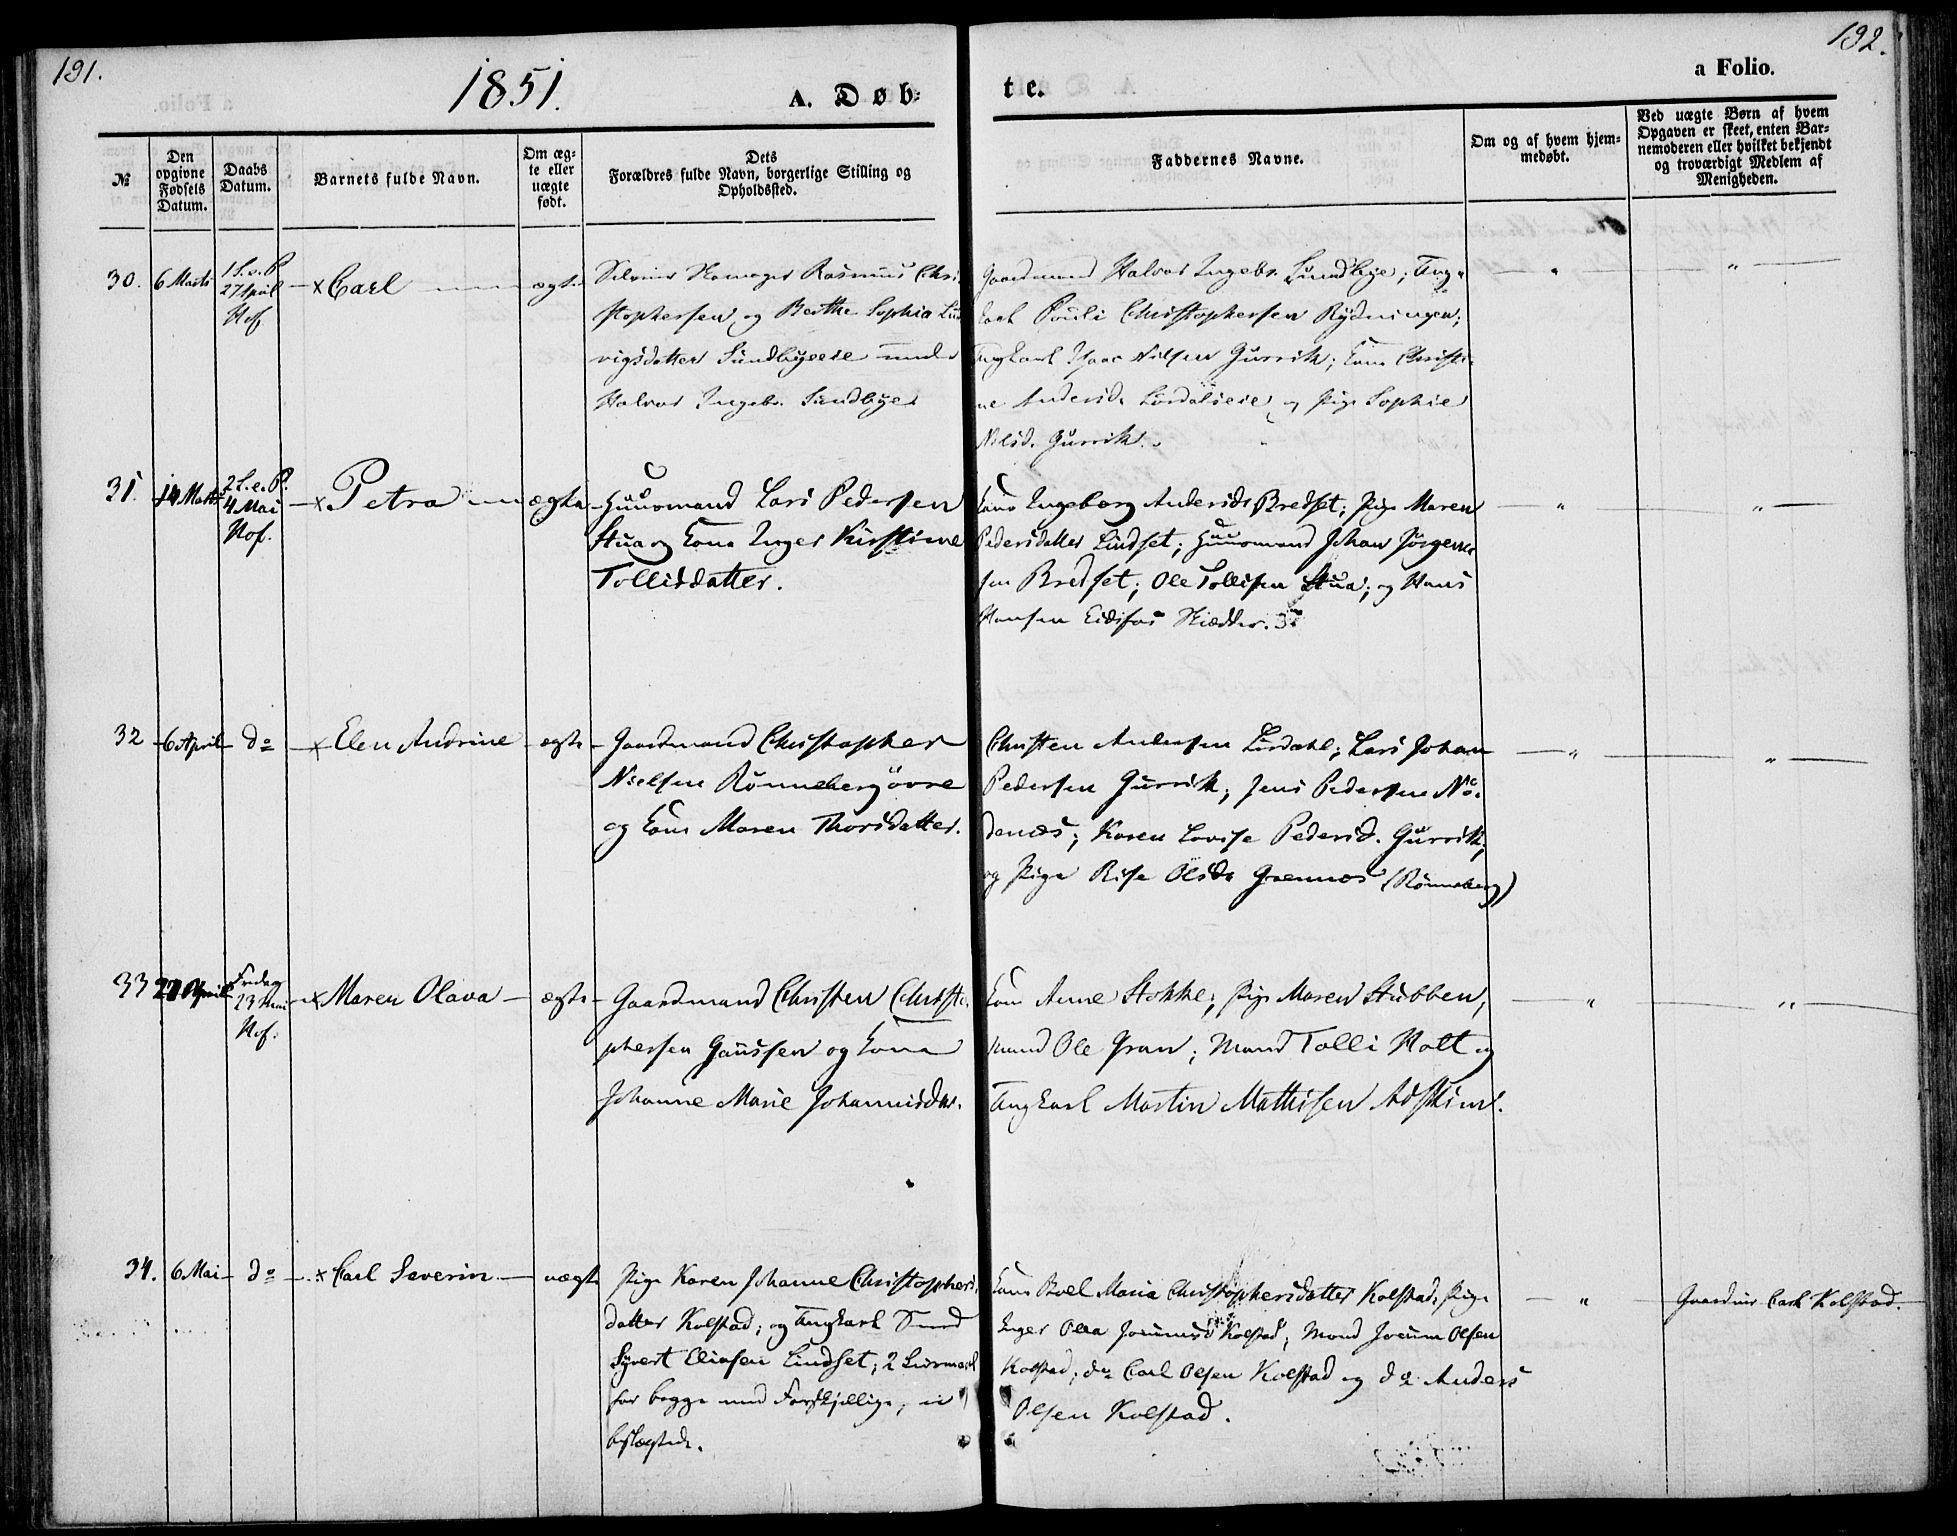 191.
1851.
A. Døb-
te.
a Folio.
192.
№
Den opgivne Fødsels Datum.
Daabs Datum.
Barnets fulde Navn.
Om ægte eller uægte født.
Dets Forældres fulde Navn, borgerlige Stilling og Opholdssted.
Faddernes Navne.
Om og af hvem hjemmedøbt.
Ved uægte Børn af hvem Opgaven er skeet, enten Barnemoderen eller hvilket bekjendt og troværdigt Medlem af Menigheden.
30.
6 Marts
1 S. e. P.
27 April
Hof
× Carl
ægte
Skomager Rasmus Chri-
stophersen og Berthe Sophia Lud
vigsdatter Sundbyeeie under
Halvor Ingebr. Sundbye
Gaardmand Halvor Ingebr. Sundbye; Ung-
karl Pouli Christophersen Rydningen;
Ungkarl Isaac Nilsen Gurrik; Kone Christi-
ne Andersd. Lørdalseie og Pige Sophie
Nilsd. Gurrik.
31.
14 Marts
2 S. e. P.
4 Mai
Hof.
× Petra
ægte
Huusmand Lars Pedersen
Stua og Kone Inger Kirstine
Tollisdatter.
Kone Ingeborg Andersdr Bredset; Pige Maren
Pedersdatter Lindset; Huusmand Johan Jörgen-
sen Bredset; Ole Tollisen Stua; og Hans
Hansen Eidsfos
32
6 April
do
× Elen Andrine
ægte
Gaardmand Christopher
Nielsen Rönneberg övre
og Kone Maren Thorsdatter.
Christen Andersen Lördahl; Lars Johan
Pedersen Gurrik; Jens Pedersen No-
denæs; Karen Lovise Pedersd. Gurrik;
og Pige Rise Olsdr Grennes (Rönneberg)
33
27 April
Fredag
23 Mai
Hof.
× Maren Olava
ægte
Gaardmand Christen Christo-
phersen Gaussen og Kone
Johanne Marie Johannisdtr.
Kone Anne Stokke; Pige Maren Stubben;
Mand Ole Gran; Mand Tolli Holt og
Ungkarl Martin Mathisen Adskim.
34.
6 Mai
do
× Carl Severin
uægte
Pige Karen Johanne Christophers-
datter Kolstad; og Ungkarl Smed
Syvert Eliasen Lindset; 2 Leiermaal
for begge med Forskjellige, ei
beslægtede.
Kone Boel Maria Christophersdatter Kolstad; Pige
Inger Olea Joramsd Kolstad; Mand Joram Olsen
Kolstad; do Carl Olsen Kolstad og do Anders
Olsen Kolstad.
Gaardm. Carl Kolstad.